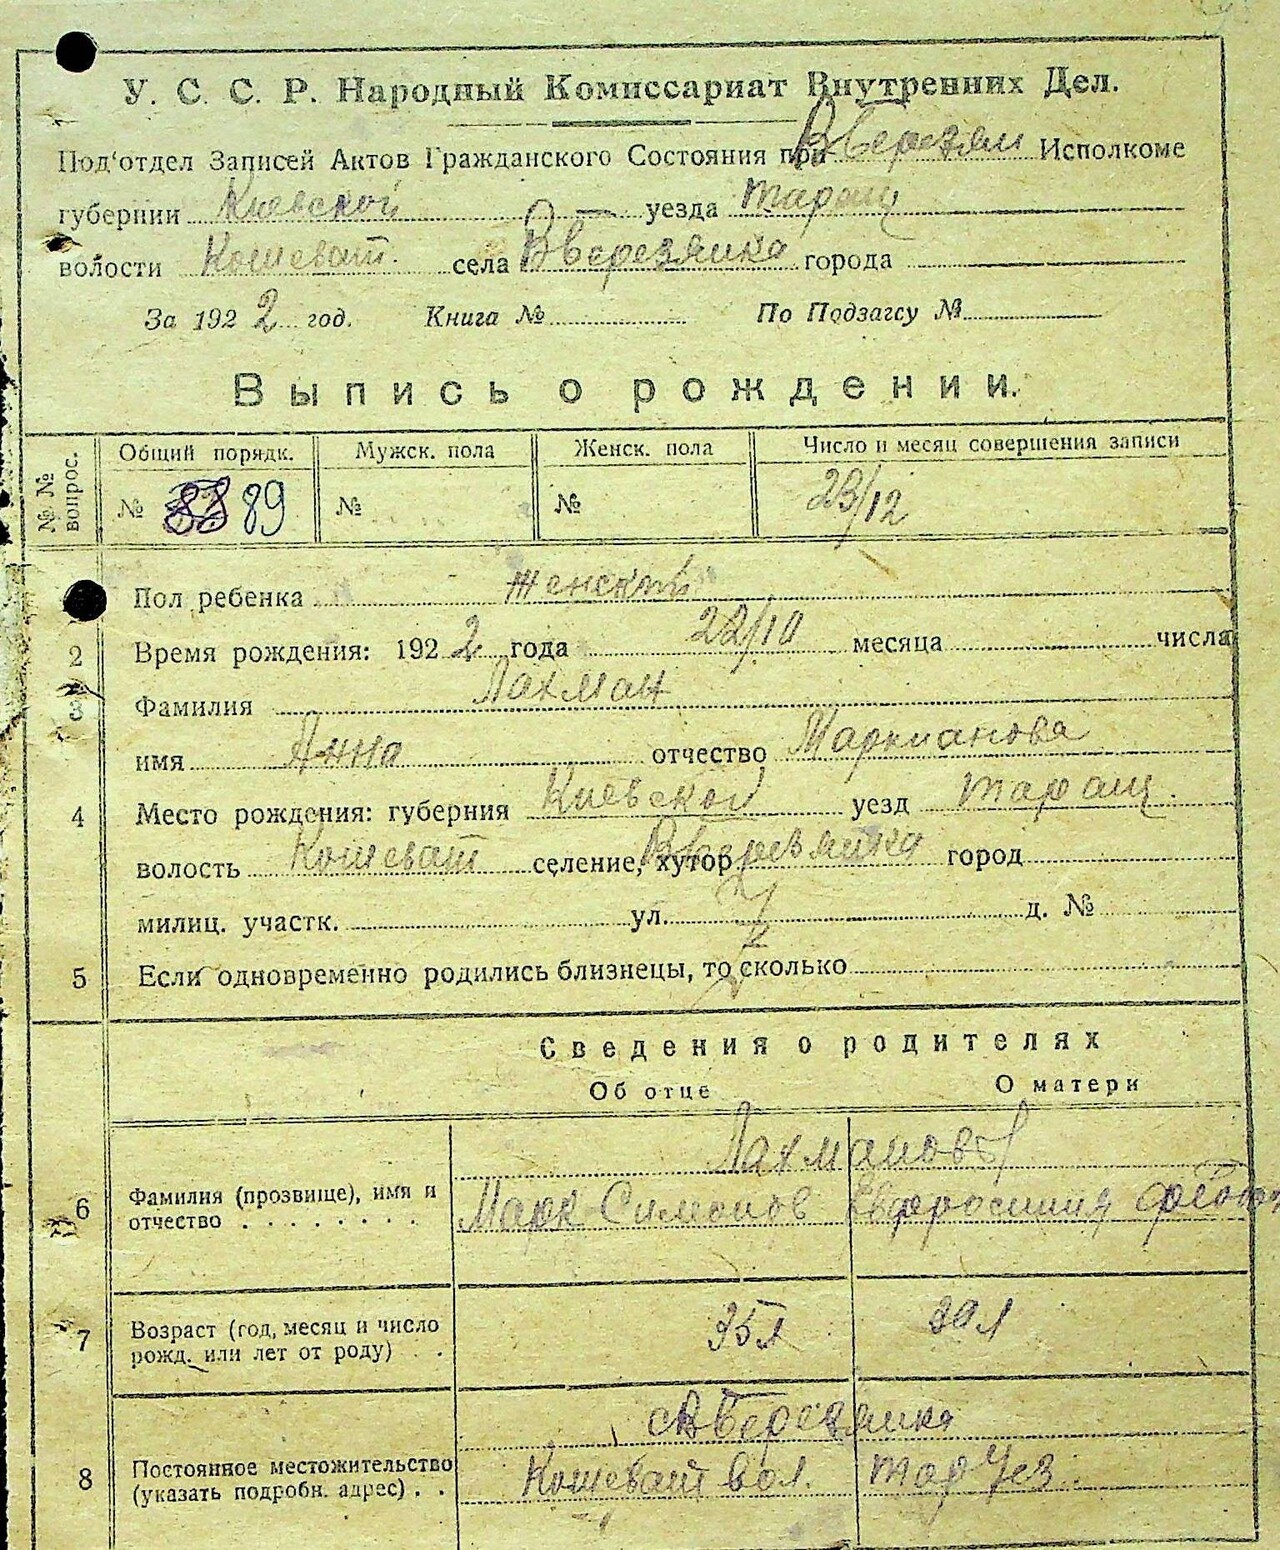 У. С. С. Р. Народный Комиссариат Внутренних Дел.
Под'отдел Записей Актов Гражданского Состояния при ВБерезян Исполкоме
губернии Киевской уезда Таращ
волости Кошеват. села ВБерезянка города
За 1922 год. Книга № По Подзагсу №
Выпись о рождении.
№ № вопрос.
Общий порядк. Мужск. пола Женск. пола Число и месяц совершения записи
№ 89 № № 23/12
Пол ребенка женский
2 Время рождения: 1922 года 22/10 месяца числа
3 Фамилия Лахман
имя Анна отчество Маркианова
4 Место рождения: губерния Киевской уезд Таращ.
волость Кошеват селение, хутор ВБерезянка город
милиц. участк. ул. д. №
5 Если одновременно родились близнецы, то сколько
Сведения о родителях
Об отце О матери
Лахмановы
6 Фамилия (прозвище), имя и отчество Марк Симонов Евфросиния
7 Возраст (год, месяц и число рожд. или лет от роду) 35л 30л
с ВБерезянка
8 Постоянное местожительство (указать подробн. адрес) Кошеват вол. Тар Уез.